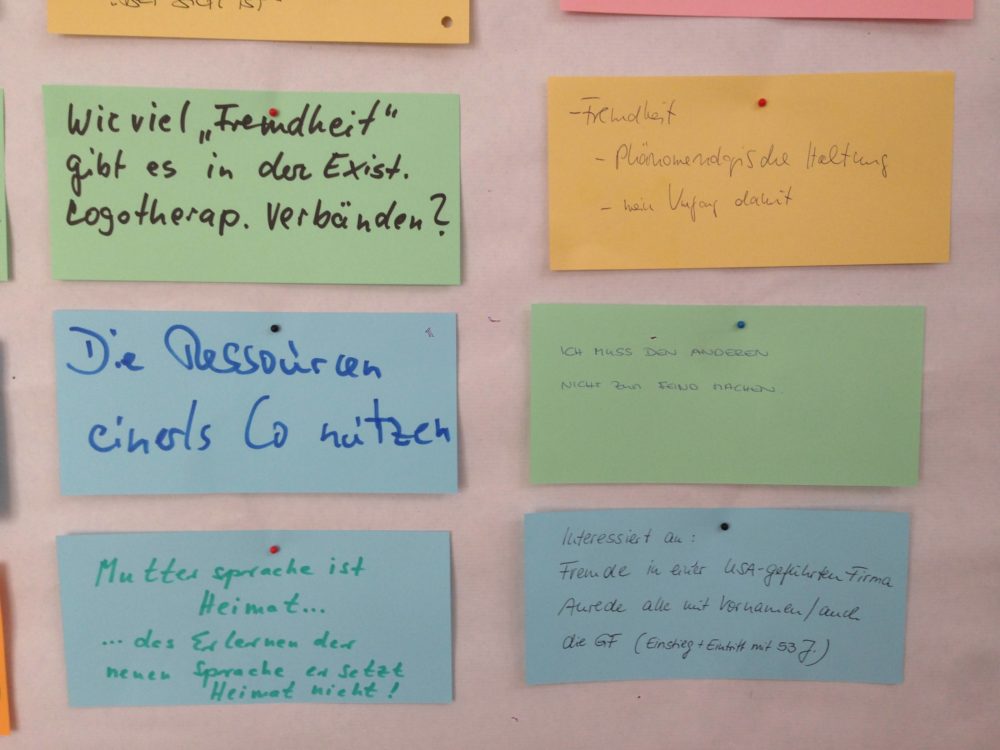 Wie viel „Fremdheit“
gibt es in der Exist.
Logotherap. Verbänden?
- Fremdheit
- Phänomenologische Haltung
- mein Umgang damit
Die Ressourcen
nützen
ICH MUSS DEN ANDEREN
NICHT ZUM FEIND MACHEN.
Muttersprache ist
Heimat...
... das Erlernen der
neuen Sprache ersetzt
Heimat nicht!
Interessiert an:
Fremde in einer USA-geführten Firma
Anrede alle mit Vornamen/auch
die GF (Einstieg + Eintritt mit 53 J.)